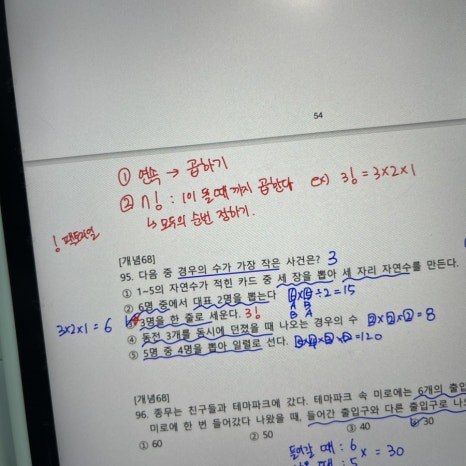 54
① 연속 → 곱하기
② n! : 1이 올 때까지 곱한다 ex) 3! = 3×2×1
↳ 모두의 순번 정하기.
! 팩토리얼
[개념68]
95. 다음 중 경우의 수가 가장 작은 사건은? 3
① 1~5의 자연수가 적힌 카드 중 세 장을 뽑아 세 자리 자연수를 만든다.
② 6명 중에서 대표 2명을 뽑는다 6×5÷2=15
A B
B A
3×2×1=6 ③ 3명을 한 줄로 세운다. 3!
④ 동전 3개를 동시에 던졌을 때 나오는 경우의 수 2×2×2=8
⑤ 5명 중 4명을 뽑아 일렬로 선다. 5×4×3×2=120
[개념68]
96. 종무는 친구들과 테마파크에 갔다. 테마파크 속 미로에는 6개의 출입
미로에 한 번 들어갔다 나왔을 때, 들어간 출입구와 다른 출입구로 나오
① 60 ② 50 ③ 40 ④ 30
들어갈 때 : 6
× = 30
때 : 5